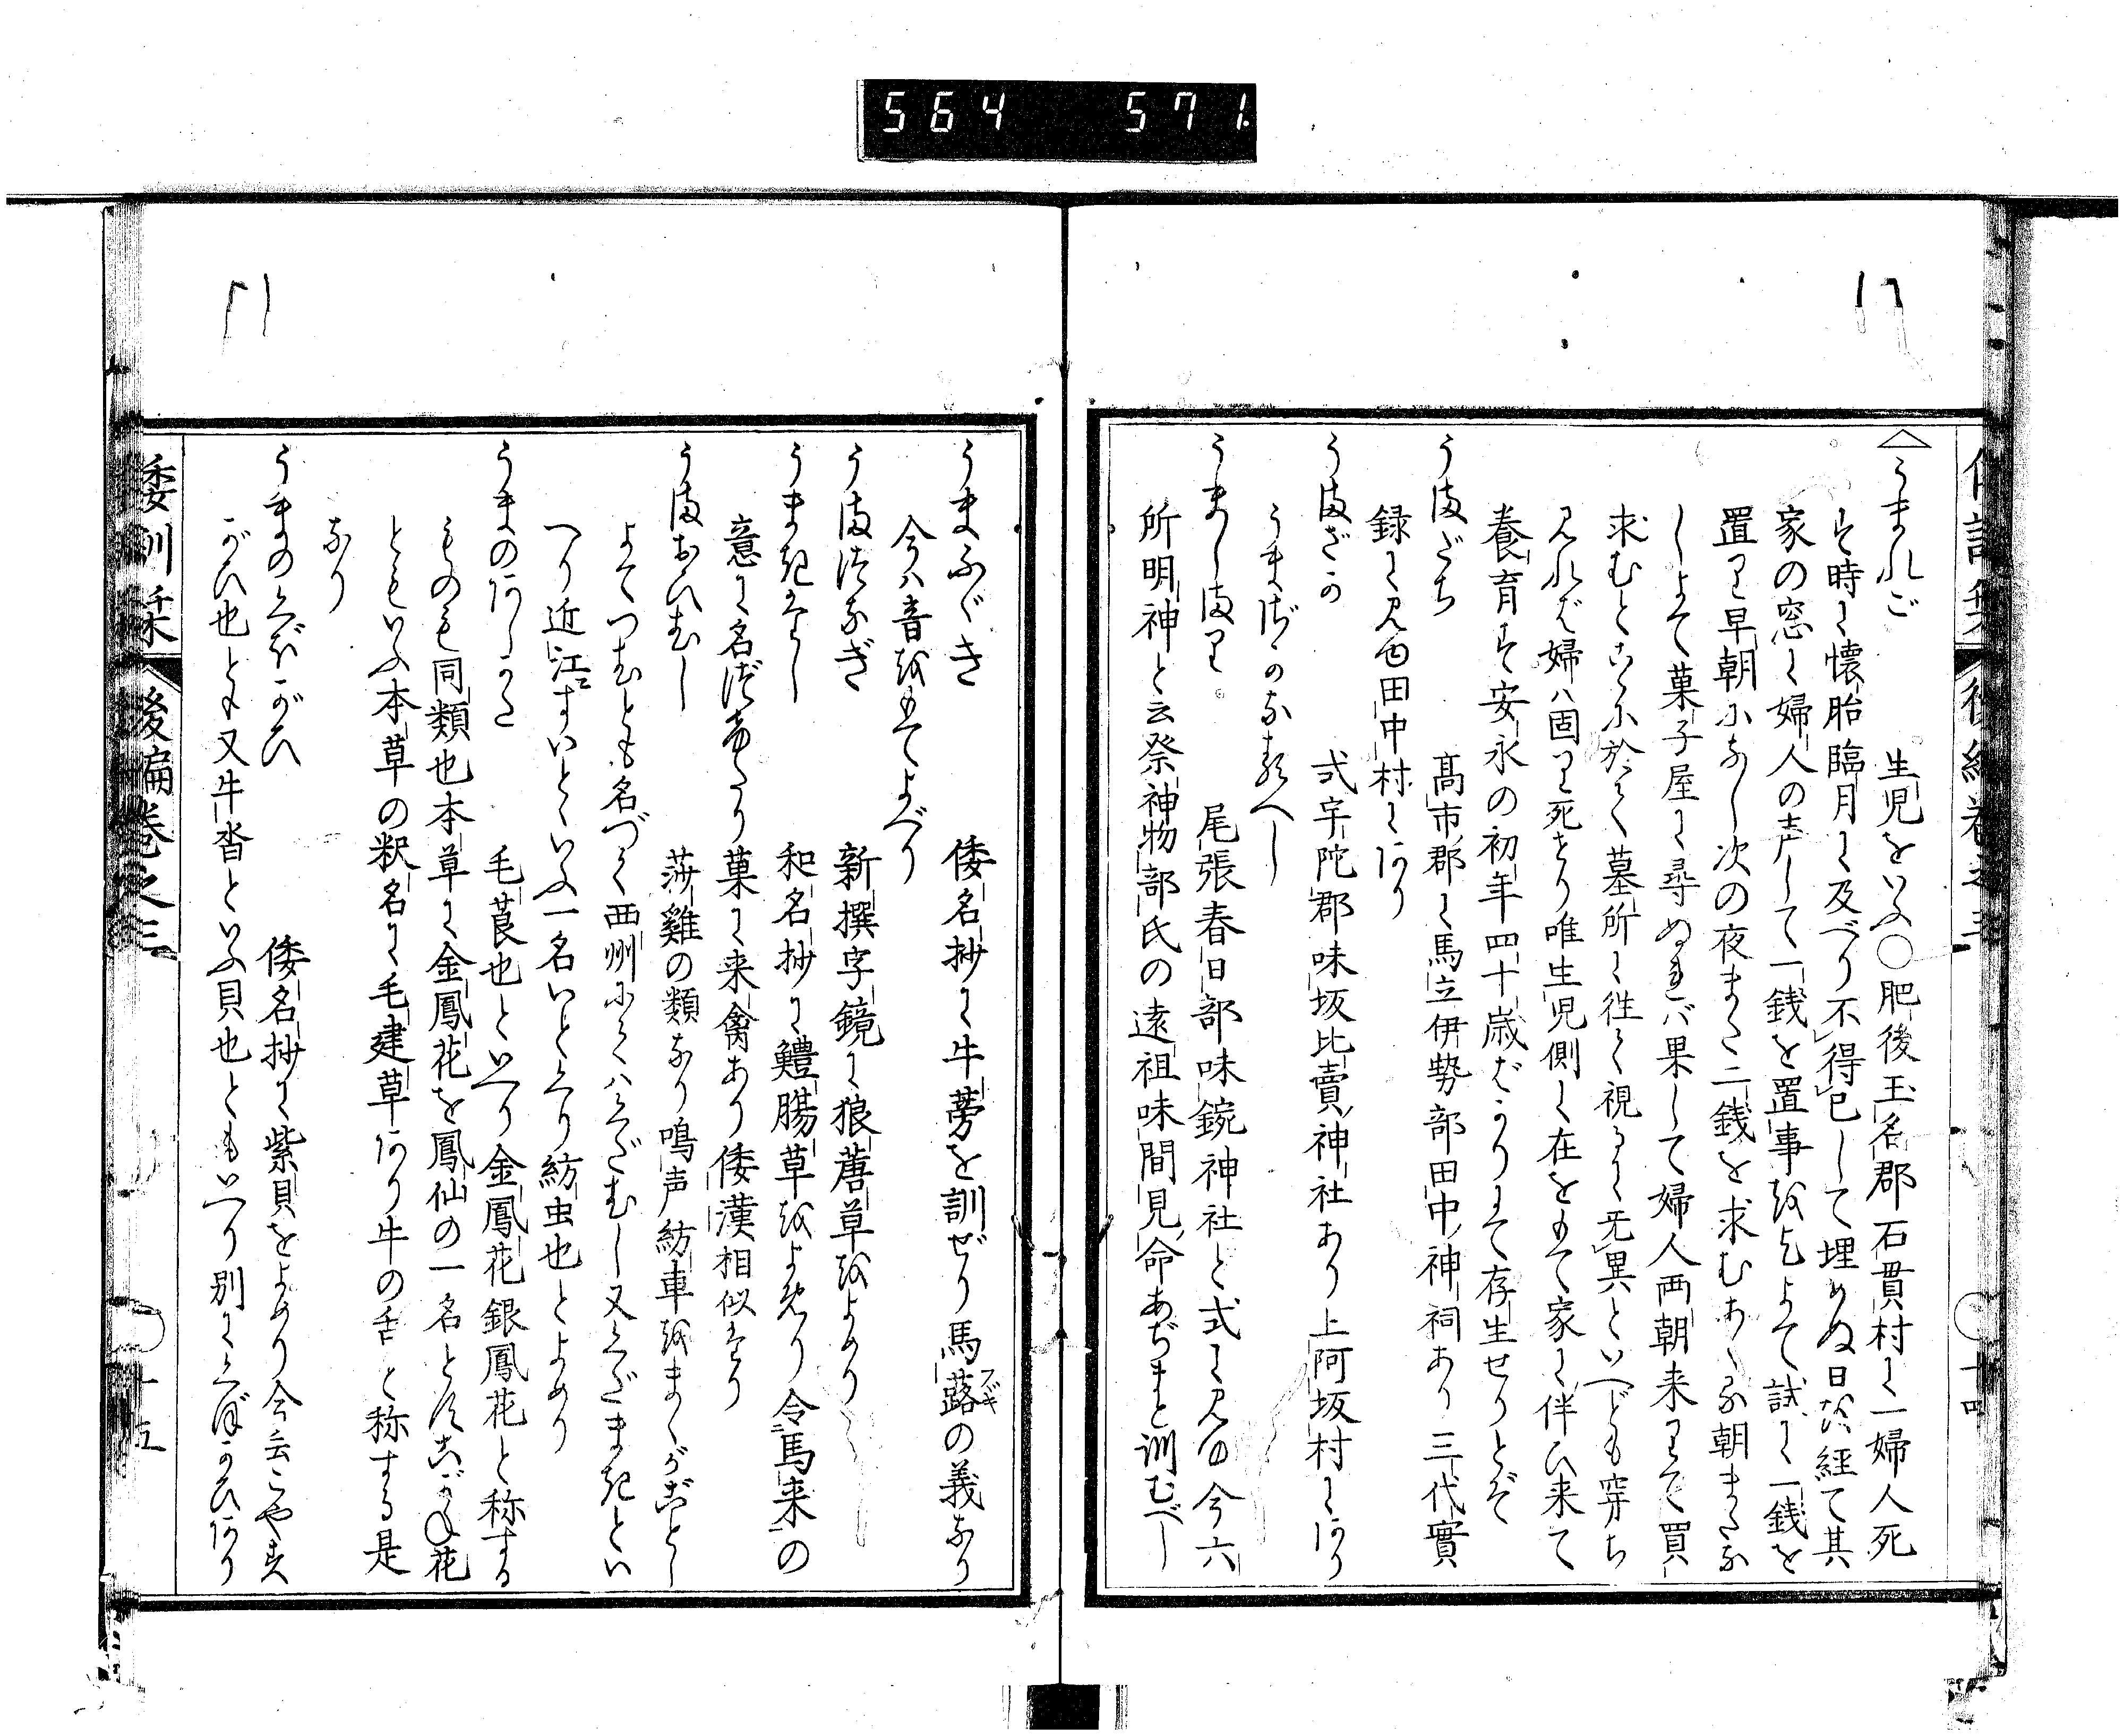 564 571
うまれご 生児をいふ〇肥後玉名郡石貫村に一婦人死
す時に懐胎臨月に及べり不得已して埋めぬ日を経て其
家の窓に婦人の声して一銭を置事を乞よて試に一銭を
置に早朝になし次の夜また二銭を求む
しよて菓子屋に尋ぬればバ果して婦人両朝来りて買
求むとこゝに於て墓所に往て視るに无異といへども穿ち
みれば婦ハ固に死せり唯生児側に在をもて家に伴ひ来て
養育す安永の初年四十歳ばかりにて存生せりとぞ
うまだち 高市郡に馬立伊勢部田中神祠あり三代實
録に見ゆ田中村にあり
うまざか 式宇陀郡味坂比賣神社あり上阿坂村にあり
うましまり 尾張春日部味鋺神社と式に見ゆ今六
所明神と云祭神物部氏の遠祖味間見命あぢまと訓むべし
うまふゞき 倭名抄に牛蒡を訓ぜり馬蕗フヾキの義なり
今ハ音をもてよべり
うまつなぎ 新撰字鏡に狼蓎草をよめり
うまきたし 和名抄に鱧腸草をよめり令馬来の
意に名づけたり菓に来禽あり倭漢相似たり
うまおひむし 莎雞の類なり鳴声紡車をまくがごとし
よてつむしとも名づく西州にてハくだむし又くだまきとい
へり近江すいとゝいふ一名いとくり紡虫也とよめり
うまのあしがた 毛莨也といへり金鳳花銀鳳花と称する
ものも同類也本草に金鳳花を鳳仙の一名と
ともいふ本草の釈名に毛建草あり牛の舌と称する是
なり
うまのくぼがひ 倭名抄に紫貝をよめり今云こやす
がひ也とも又牛沓といふ貝也ともいへり別にくぼがひあり
倭訓栞 後編巻之三 十五